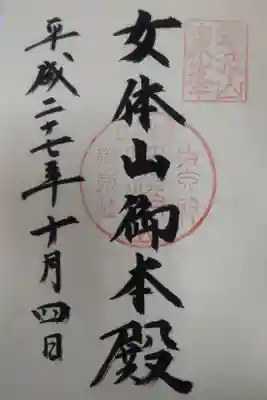 女体山御本殿
平成二十七年十月四日